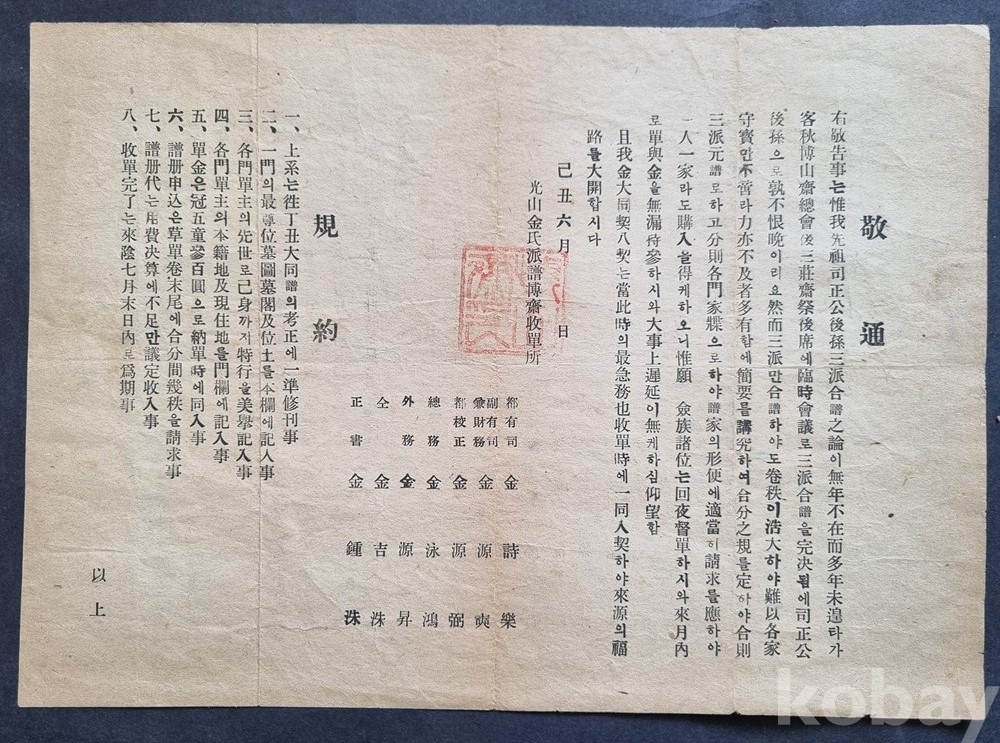 敬通
右敬告事는惟我先祖司正公後孫三派合譜之論이無年不在而多年未遑타가
客秋博山齋總會後三莊齋祭後席에臨時會議로三派合譜을完決됨에司正公
後孫으로孰不恨晩이리요然而三派만合譜하야도卷秩이浩大하야難以各家
守寶만不啻라力亦不及者多有함에簡要를講究하여合分之規를定하야合則
三派元譜로하고分則各門家牒으로하야譜家의形便에適當히請求를應하야
一人一家라도購入을得케하오니惟願 僉族諸位는回夜督單하시와來月內
로單與金을無漏持參하시와大事上遲延이無케하심仰望함
且我金大同契八契는當此時의最急務也收單時에一同入契하야來源의福
路를大開합시다
己丑六月 日
光山金氏派譜博齋收單所
都有司 金詩樂
副有司兼財務 金源奭
都校正 金源弼
總務 金泳鴻
外務 金源昇
仝 金吉洙
正書 金鍾洙
規約
一、上系는徃丁丑大同譜의考正에一準修刊事
二、一門의最尊位墓圖墓閣及位土를本欄에記入事
三、各門單主의先世로己身까지特行을美擧記入事
四、各門單主의本籍地及現住地를門欄에記入事
五、單金은冠五童參百圓으로納單時에同入事
六、譜册申込은草單卷末尾에合分間幾秩을請求事
七、譜册代는用費決算에不足만議定收入事
八、收單完了는來陰七月末日內로爲期事
以上
kobay